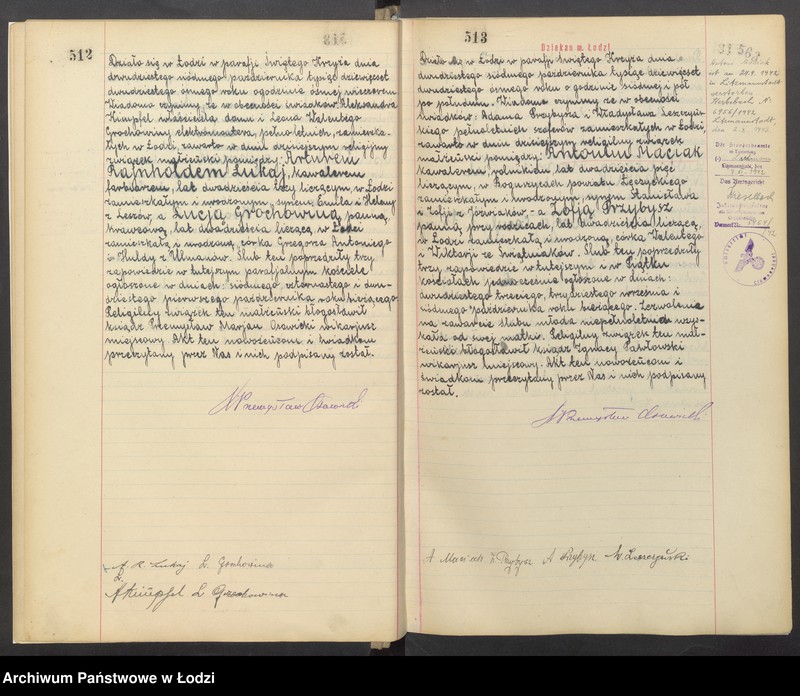 512
Działo się w Łodzi w parafji Świętego Krzyża dnia
dwudziestego siódmego października tysiąc dziewięćset
dwudziestego ósmego roku o godzinie ósmej wieczorem.
Wiadomo czynimy, że w obecności świadków Aleksandra
Kimpfel właściciela domu i Leona Walentego
Grochowiny elektromontera, pełnoletnich, zamieszka-
łych w Łodzi, zawarto w dniu dzisiejszym religijny
związek małżeński pomiędzy: Arturem
Rajnholdem Lukaj, kawalerem
farbiarzem, lat dwadzieścia trzy liczącym, w Łodzi
zamieszkałym i urodzonym, synem Emila i Heleny
z Leszów, a Lucją Grochowiną panną,
krawcową, lat dwadzieścia liczącą, w Łodzi
zamieszkałą i urodzoną, córką Grzegorza Antoniego
i Huldy z Ulmanów. Ślub ten poprzedziły trzy
zapowiedzie w tutejszym parafjalnym kościele
ogłoszone w dniach: siódmego, czternastego i dwu-
dziestego pierwszego października roku bieżącego.
Religijny związek ten małżeński błogosławił
ksiądz Przemysław Marjan Osowicki wikarjusz
miejscowy. Akt ten nowożeńcom i świadkom
przeczytany przez Nas i nich podpisany został.
A R Lukaj L. Grochowina
A Kimpfel L Grochowina
513
Dziekan m. Łodzi
Działo się w Łodzi w parafji Świętego Krzyża dnia
dwudziestego siódmego października tysiąc dziewięćset
dwudziestego ósmego roku o godzinie siódmej i pół
po południu. Wiadomo czynimy że w obecności
świadków: Adama Przybysza i Władysława Leszczyń-
skiego pełnoletnich szoferów zamieszkałych w Łodzi,
zawarto w dniu dzisiejszym religijny związek
małżeński pomiędzy: Antonim Maciak
kawalerem, rolnikiem lat dwadzieścia pięć
liczącym, w Boguszycach powiatu Łęczyckiego
zamieszkałym i urodzonym, synem Stanisława
i Zofji z Józwiaków, a Zofją Przybysz
panną przy rodzicach, lat dwadzieścia liczącą,
w Łodzi zamieszkałą i urodzoną, córką Walentego
i Wiktorji ze Świątniaków. Ślub ten poprzedziły
trzy zapowiedzie w tutejszym i w Piątku
kościołach ogłoszone w dniach:
dwudziestego trzeciego, trzydziestego września i
siódmego października roku bieżącego. Zezwolenie
na zawarcie ślubu młoda niepełnoletnia uzys-
kała od swej matki. Religijny związek ten mał-
żeński błogosławił ksiądz Ignacy Pawłowski
wikarjusz miejscowy. Akt ten nowożeńcom i
świadkom przeczytany przez Nas i nich podpisany
został.
A Maciak Z Przybysz A Przybysz W. Leszczyński
Das Amtsgericht
Archiwum Państwowe w Łodzi